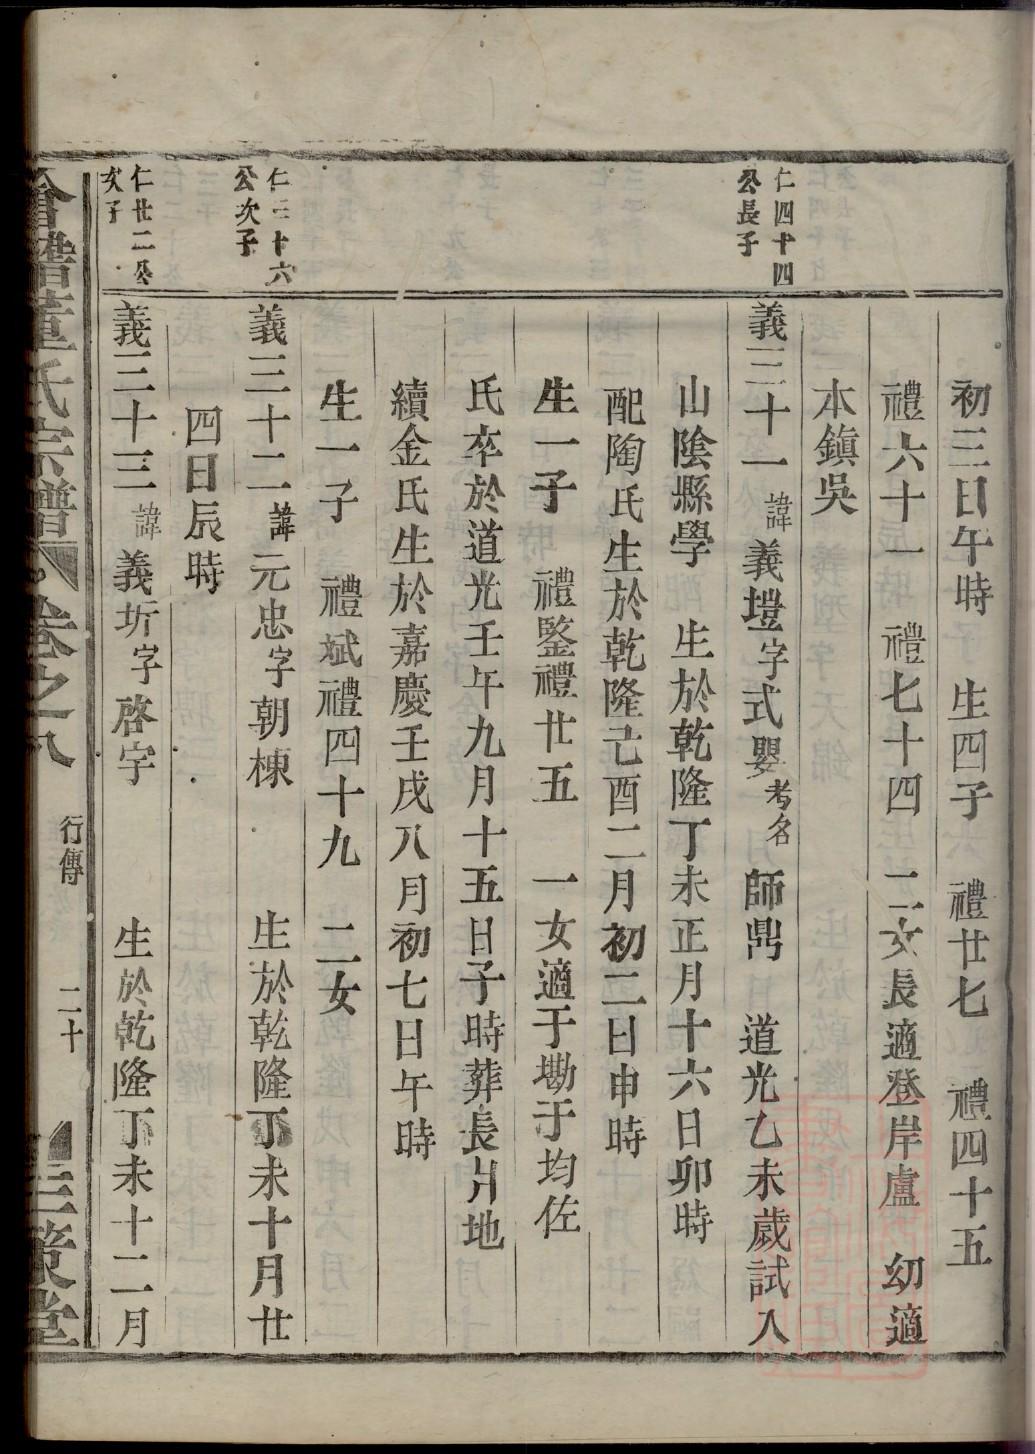 初三日午時 生四子 禮廿七 禮四十五
禮六十一 禮七十四 二女長適登岸盧 幼適
本鎮吳
仁四十四
公長子
義三十一 諱義塏字式嬰考名師鼎 道光乙未歲試入
山陰縣學 生於乾隆丁未正月十六日卯時
配陶氏生於乾隆己酉二月初二日申時
生一子 禮鑒禮廿五 一女適于墈于均佐
氏卒於道光壬午九月十五日子時葬長爿地
續金氏生於嘉慶壬戌八月初七日午時
生一子 禮斌禮四十九 二女
仁三十六
公次子
義三十二諱元忠字朝棟 生於乾隆丁未十月廿
四日辰時
仁廿二公
次子
義三十三諱義圻字啓宇 生於乾隆丁未十二月
會稽董氏宗譜 卷之八 行傳 二十 三策堂